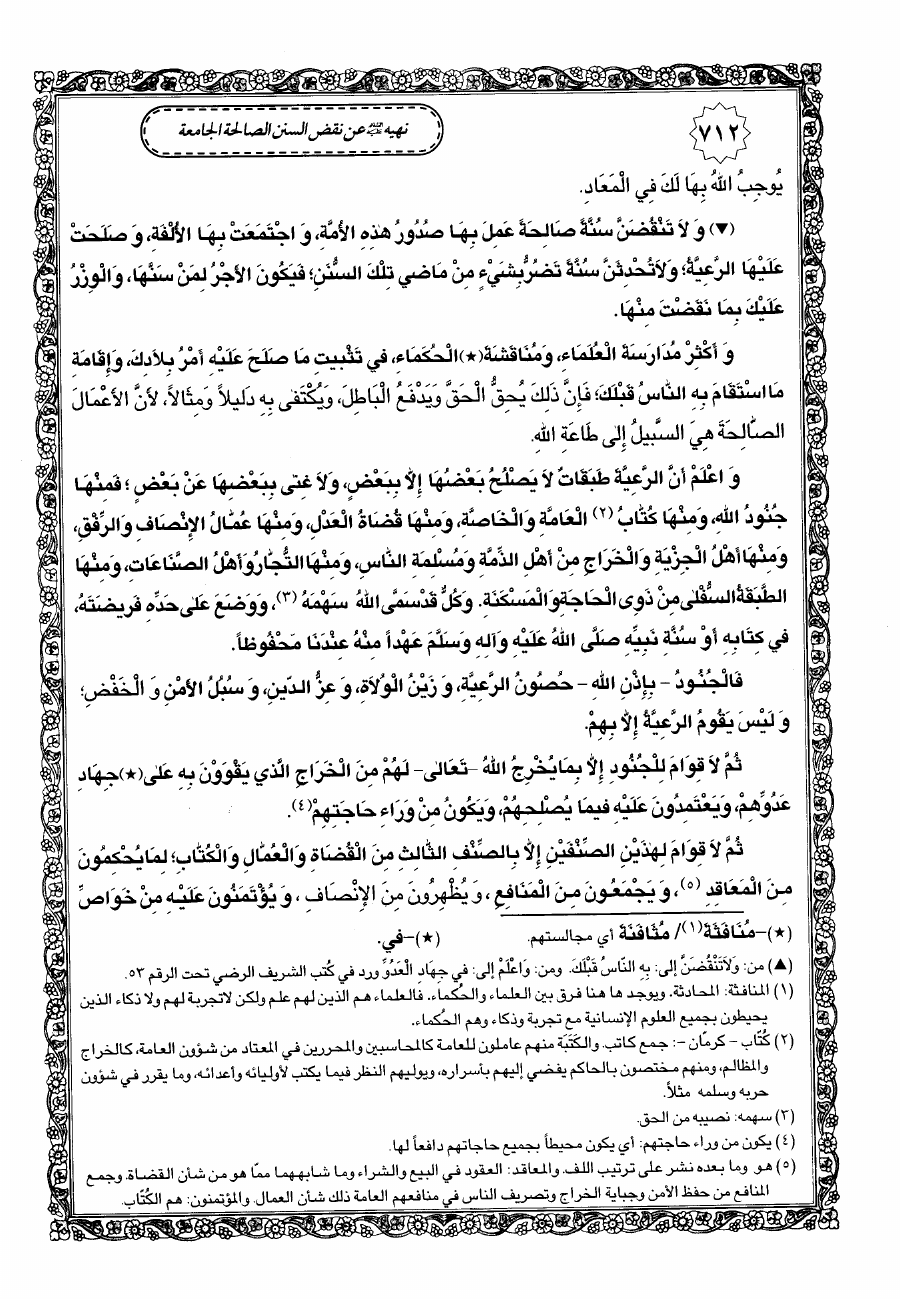 ٧١٢
نهيه عليه السلام عن نقض السنن الصالحة الجامعة
يُوجِبُ اللهُ بِهَا لَكَ فِي الْمَعَادِ.
(▼) وَ لَا تَنْقُضَنَّ سُنَّةً صَالِحَةً عَمِلَ بِهَا صُدُورُ هَذِهِ الأُمَّةِ، وَ اجْتَمَعَتْ بِهَا الأُلْفَةُ، وَ صَلَحَتْ
عَلَيْهَا الرَّعِيَّةُ؛ وَلَاتُحْدِثَنَّ سُنَّةً تَضُرُّ بِشَيْءٍ مِنْ مَاضِي تِلْكَ السُّنَنِ؛ فَيَكُونَ الأَجْرُ لِمَنْ سَنَّهَا، وَالْوِزْرُ
عَلَيْكَ بِمَا نَقَضْتَ مِنْهَا.
وَ أَكْثِرْ مُدَارَسَةَ الْعُلَمَاءِ، وَمُنَاقَشَةَ(★)الْحُكَمَاءِ، فِي تَثْبِيتِ مَا صَلَحَ عَلَيْهِ أَمْرُ بِلَادِكَ، وَإِقَامَةِ
مَا اسْتَقَامَ بِهِ النَّاسُ قَبْلَكَ؛ فَإِنَّ ذَلِكَ يُحِقُّ الْحَقَّ وَيَدْفَعُ الْبَاطِلَ، وَيُكْتَفَى بِهِ دَلِيلاً وَمِثَالاً، لأَنَّ الأَعْمَالَ
الصَّالِحَةَ هِيَ السَّبِيلُ إِلَى طَاعَةِ اللهِ.
وَ اعْلَمْ أَنَّ الرَّعِيَّةَ طَبَقَاتٌ لَا يَصْلُحُ بَعْضُهَا إِلاَّ بِبَعْضٍ، وَلَا غِنَى بِبَعْضِهَا عَنْ بَعْضٍ ؛ فَمِنْهَا
جُنُودُ اللهِ، وَمِنْهَا كُتَّابُ (٢) الْعَامَّةِ وَالْخَاصَّةِ، وَمِنْهَا قُضَاةُ الْعَدْلِ، وَمِنْهَا عُمَّالُ الإِنْصَافِ وَالرِّفْقِ،
وَمِنْهَا أَهْلُ الْجِزْيَةِ وَالْخَرَاجِ مِنْ أَهْلِ الذِّمَّةِ وَمُسْلِمَةِ النَّاسِ، وَمِنْهَا التُّجَّارُ وَأَهْلُ الصِّنَاعَاتِ، وَمِنْهَا
الطَّبَقَةُ السُّفْلَى مِنْ ذَوِي الْحَاجَةِ وَالْمَسْكَنَةِ. وَكُلٌّ قَدْ سَمَّى اللهُ سَهْمَهُ (٣)، وَوَضَعَ عَلَى حَدِّهِ فَرِيضَتَهُ،
فِي كِتَابِهِ أَوْ سُنَّةِ نَبِيِّهِ صَلَّى اللهُ عَلَيْهِ وَآلِهِ وَسَلَّمَ عَهْداً مِنْهُ عِنْدَنَا مَحْفُوظاً.
فَالْجُنُودُ - بِإِذْنِ اللهِ - حُصُونُ الرَّعِيَّةِ، وَ زَيْنُ الْوُلَاةِ، وَ عِزُّ الدِّينِ، وَ سُبُلُ الأَمْنِ وَ الْخَفْضِ؛
وَ لَيْسَ يَقُومُ الرَّعِيَّةُ إِلاَّ بِهِمْ.
ثُمَّ لَا قِوَامَ لِلْجُنُودِ إِلاَّ بِمَا يُخْرِجُ اللهُ -تَعَالَى- لَهُمْ مِنَ الْخَرَاجِ الَّذِي يَقْوَوْنَ بِهِ عَلَى(★)جِهَادِ
عَدُوِّهِمْ، وَيَعْتَمِدُونَ عَلَيْهِ فِيمَا يُصْلِحُهُمْ، وَيَكُونُ مِنْ وَرَاءِ حَاجَتِهِمْ(٤).
ثُمَّ لَا قِوَامَ لِهَذَيْنِ الصِّنْفَيْنِ إِلاَّ بِالصِّنْفِ الثَّالِثِ مِنَ الْقُضَاةِ وَالْعُمَّالِ وَالْكُتَّابِ؛ لِمَا يُحْكِمُونَ
مِنَ الْمَعَاقِدِ (٥)، وَ يَجْمَعُونَ مِنَ الْمَنَافِعِ ، وَ يُظْهِرُونَ مِنَ الإِنْصَافِ ، وَ يُؤْتَمَنُونَ عَلَيْهِ مِنْ خَوَاصِّ
(★)-مُنَافَثَةَ(١)/ مُثَافَنَةَ أي مجالستهم. (★)-في.
(▲) من: وَلَاتَنْقُضَنَّ إلى: بِهِ النَّاسُ قَبْلَكَ. ومن: وَاعْلَمْ إلى: فِي جِهَادِ الْعَدُوِّ ورد في كُتب الشريف الرضي تحت الرقم ٥٣.
(١) المنافثة: المحادثة. ويوجد ها هنا فرق بين العلماء والحُكماء. فالعلماء هم الذين لهم علم ولكن لاتجربة لهم ولا ذكاء الذين
يحيطون بجميع العلوم الإنسانية مع تجربة وذكاء وهم الحكماء.
(٢) كُتّاب - كرمّان -: جمع كاتب. والكَتَبَة منهم عاملون للعامة كالمحاسبين والمحررين في المعتاد من شؤون العامة، كالخراج
والمظالم، ومنهم مختصون بالحاكم يفضي إليهم بأسراره، ويوليهم النظر فيما يكتب لأوليائه وأعدائه، وما يقرر في شؤون
حربه وسلمه مثلاً.
(٣) سهمه: نصيبه من الحق.
(٤) يكون من وراء حاجتهم: أي يكون محيطاً بجميع حاجاتهم دافعاً لها.
(٥) هو وما بعده نشر على ترتيب اللف. والمعاقد: العقود في البيع والشراء وما شابههما ممّا هو من شأن القضاة. وجمع
المنافع من حفظ الأمن وجباية الخراج وتصريف الناس في منافعهم العامة ذلك شأن العمال. والمؤتمنون: هم الكُتّاب.